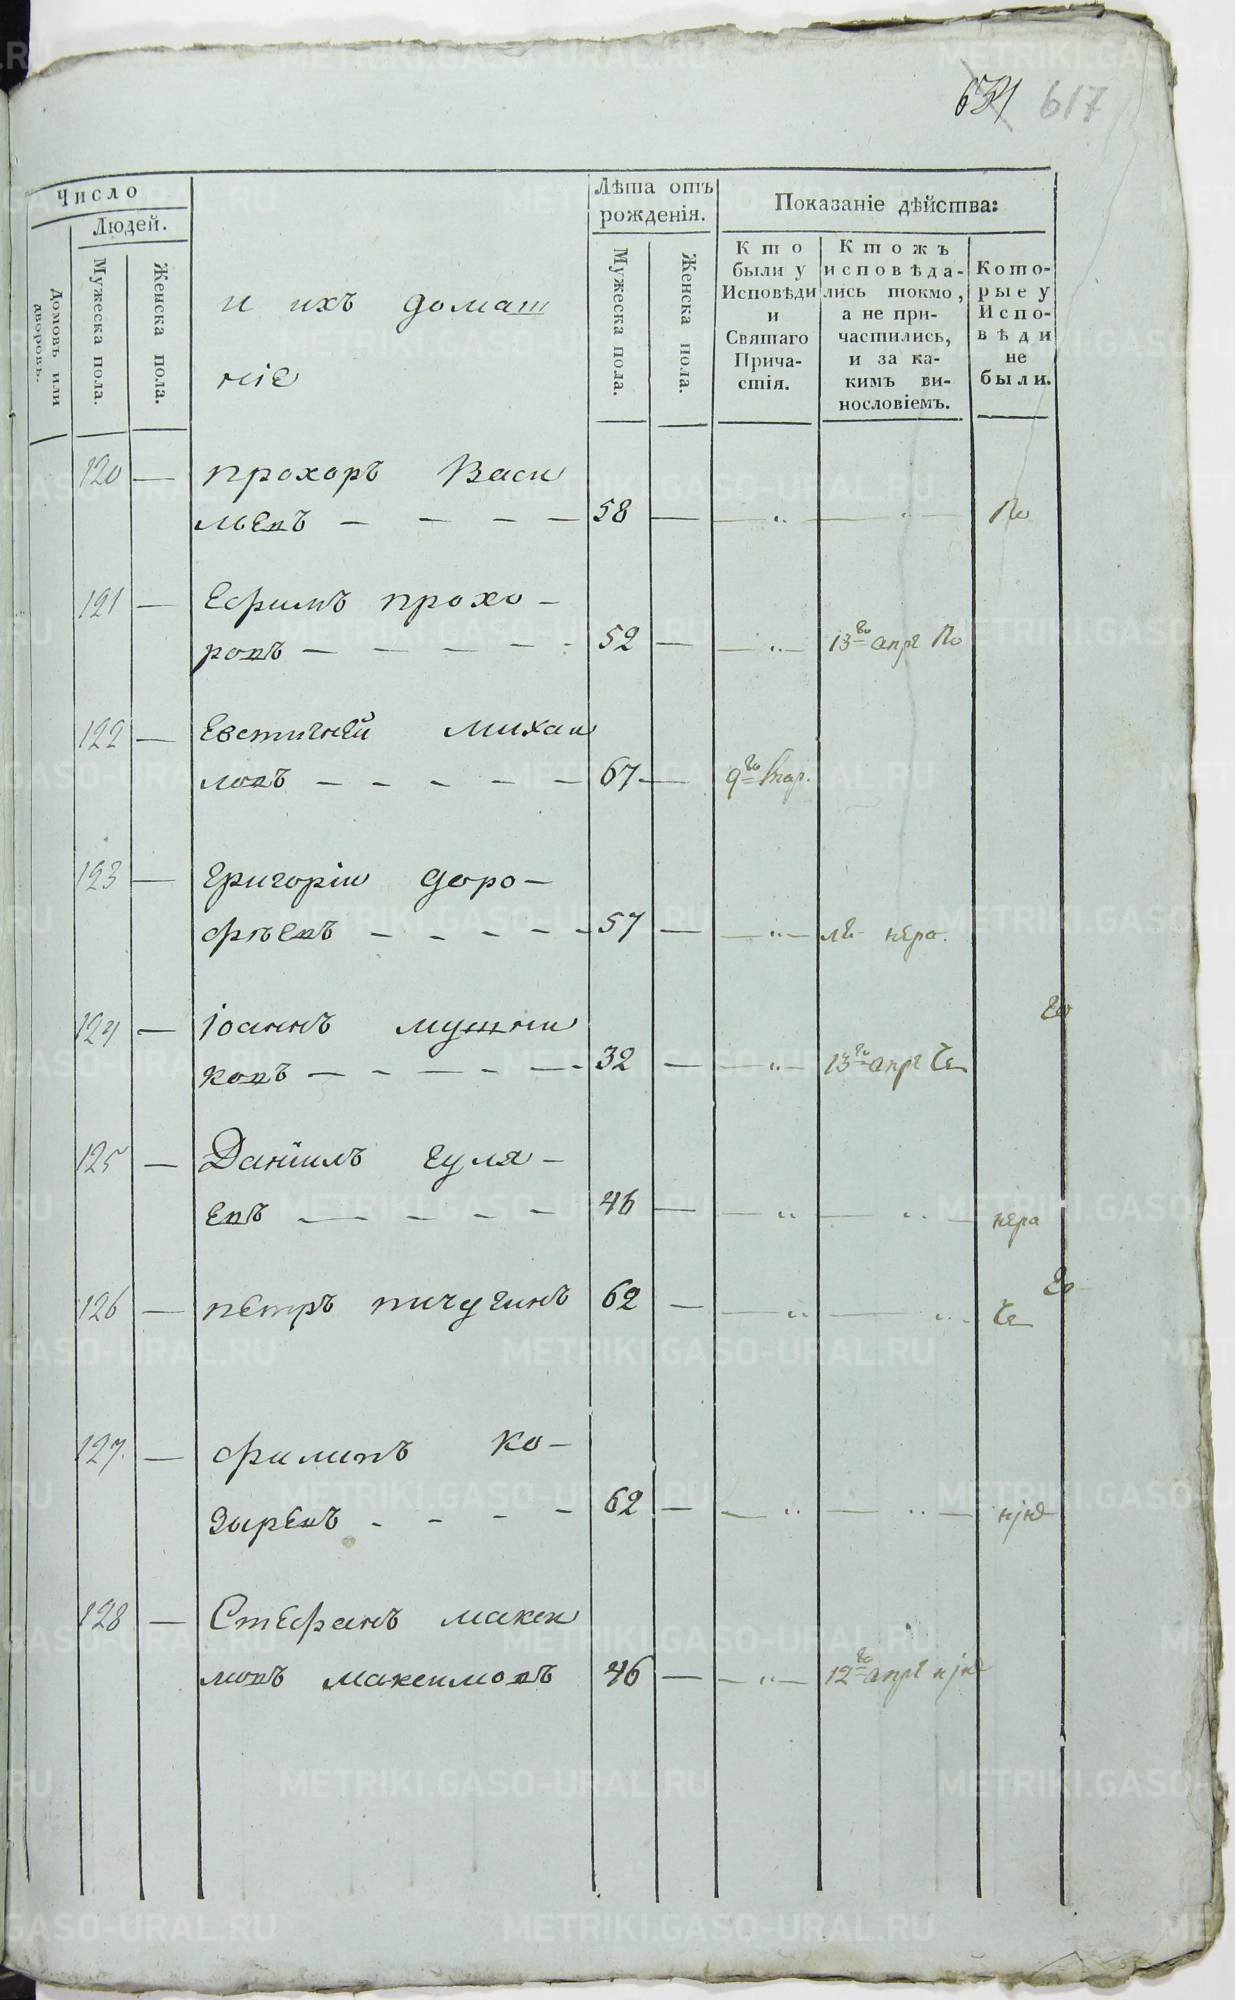 634 617
Число
Людей.
Домовъ или дворовъ.
Мужеска пола.
Женска пола.
и ихъ домаш
ніе
Лѣта отъ
рожденія.
Мужеска пола.
Женска пола.
Показаніе дѣйства:
Кто
были у
Исповѣди
и
Святаго
Прича-
стія.
Ктожъ
исповѣда-
лись токмо,
а не при-
частились,
и за ка-
кимъ ви-
нословіемъ.
Кото-
рые у
Испо-
вѣди
не
были.
120 — Прохоръ Васи
льевъ — — — — 58 — — „ — — „ — По
121 — Ефимъ прохо —
ровъ — — — — — 52 — — „ — 13го апр По
122 — Евстигней михаи
ловъ — — — — — 67 — 9го Мар.
123 — Григоріи доро —
фѣевъ — — — — — 57 — — „ — нера.
124 — Іоаннъ мушни
ковъ — — — — — 32 — — „ — 13го апр
125 — Даніилъ гуля —
евъ — — — — — 46 — — „ — — „ — нера
126 — петръ пичугинъ 62 — — „ — — „ —
127. — филипъ ко —
зыревъ — — — — 62 — — „ — — „ —
128 — Стефанъ макси
мовъ максимовъ 46 — — „ — 12го апр